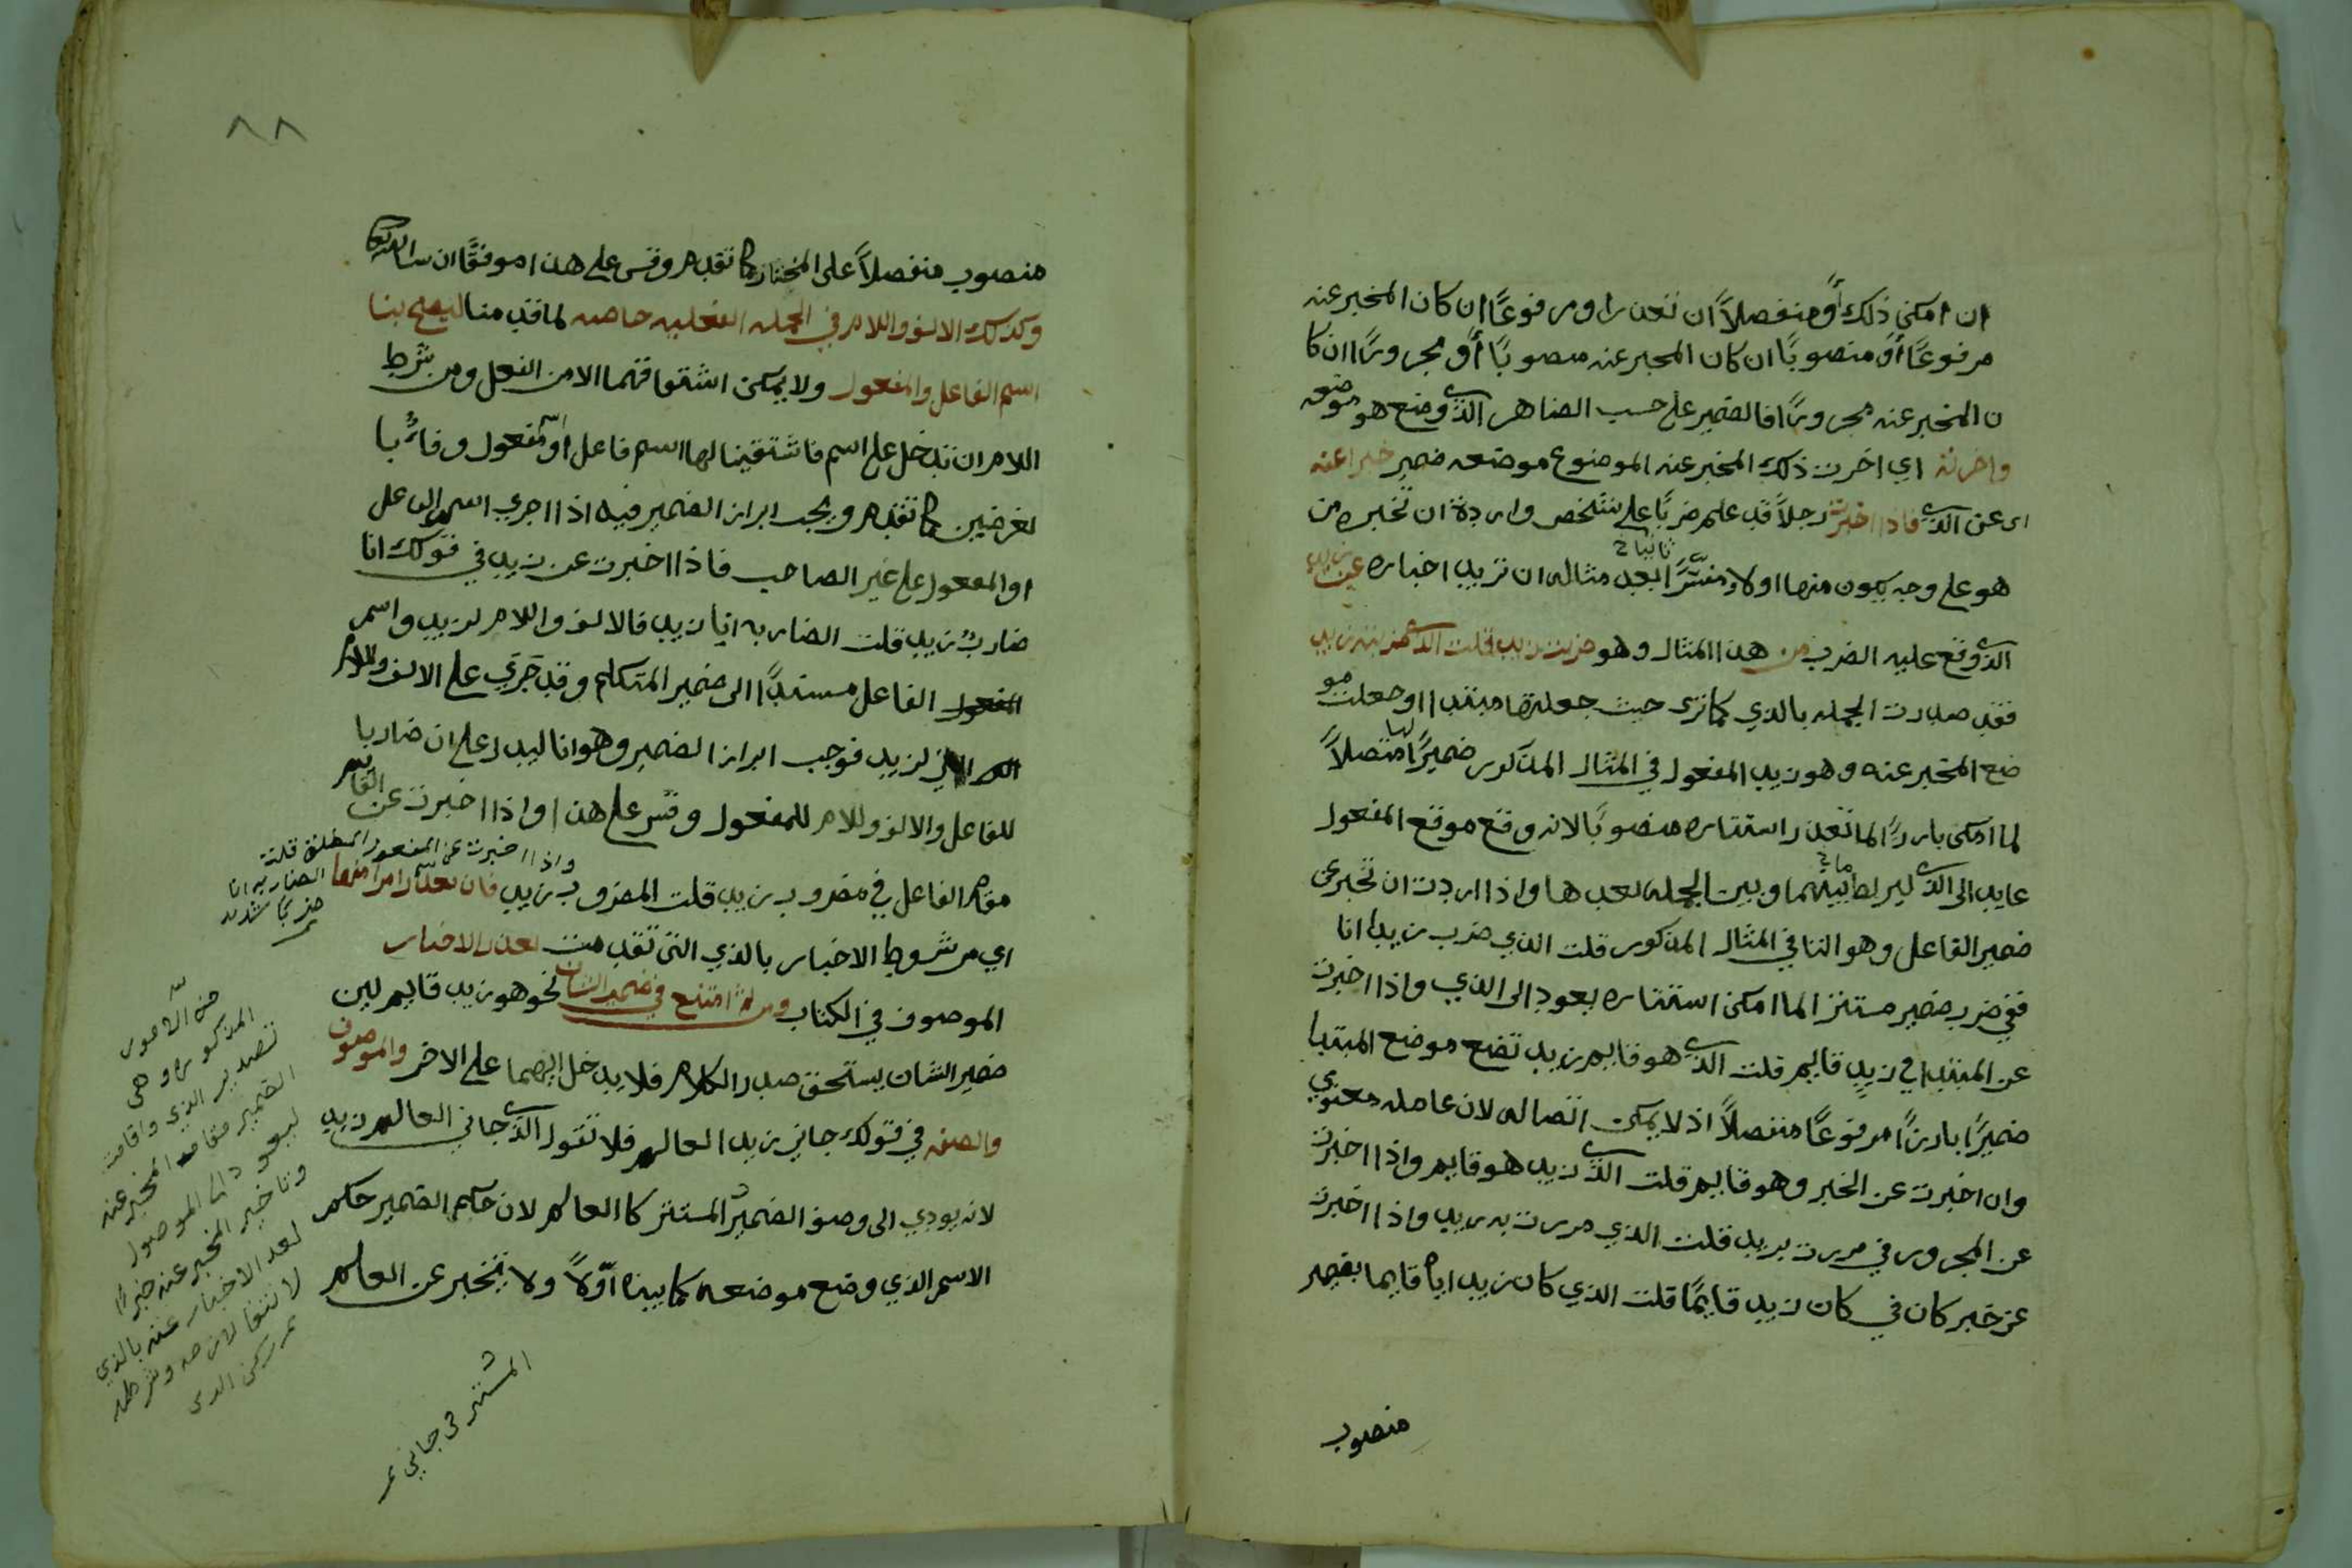 ان امكن ذلك أو منفصلاً ان تعذر او مرفوعًا ان كان المخبر عنه
مرفوعًا أو منصوبًا ان كان المخبر عنه منصوبًا أو مجرورًا ان كا
ن المخبر عنه مجرورًا فالضمير على حسب الضاهر الذي وضع هو موضعه
واخرته اي اخرت ذلك المخبر عنه الموضوع موضعه ضمير خبرا عنه
اى عن الذي فاذا اخبرت رجلاً قد علم ضربًا على شخص واردة ان تخبره من
هو على وجه يكون منهما اولا ومفسَّرًا بعد ثانيا مثاله ان تريد اخباره عن زيد
الذي وقع عليه الضرب من هذا المثال وهو ضربت زيد قلت الذي ضربته زيد
فقد صدرت الجمله بالذي كما ترى حيث جعلتها مبتدا وجعلت مو
ضع المخبر عنه وهو زيد المفعول في المثال المذكور ضميرًا لها متصلاً
لما امكن بارزًا لما تعذر استتاره منصوبًا لانه وقع موقع المفعول
عايد الى الذي ليربط بينهما وبين الجمله بعدها واذا اردت ان تخبر عن
ضمير الفاعل وهو التا في المثال المذكور قلت الذي ضرب زيدا انا
ففي ضرب ضمير مستتر لما امكن استتاره يعود الى الذي واذا اخبرت
عن المبتدا في زيد قايم قلت الذي هو قايم زيد تضع موضع المبتدا
ضميرًا بارزًا مرفوعًا منفصلاً اذ لا يمكن اتصاله لان عامله معنوي
وان اخبرت عن الخبر وهو قايم قلت الذي زيد هو قايم واذا اخبرت
عن المجرور في مررت بزيد قلت الذي مررت به زيد واذا اخبرت
عن خبر كان في كان زيد قايمًا قلت الذي كان زيد اياه قايما بضمير
منصوب
٨٨
منصوب منفصلاً على المختار كما تقدم وقس على هذا موفقًا ان شا الله تعا
وكذلك الالف واللام في الجمله الفعليه خاصه لما قدمنا ليصح بنا
اسم الفاعل والمفعول ولا يمكن اشتقاقهما الا من الفعل ومن شرط
اللام ان تدخل على اسم فاشتقينا لها اسم فاعل أو مفعول وفائًا با
لغرضين كما تقدم ويجب ابراز الضمير فيه اذا اجري اسم الفاعل
او المفعول على غير الصاحب فاذا اخبرت عن زيد في قولك انا
ضاربٌ زيد قلت الضاربه انا زيد فالالف واللام لزيد واسم
الفاعل مسندًا الى ضمير المتكلم وقد جَرَي على الالف واللام
لزيد فوجب ابراز الضمير وهو انا ليدل على ان ضاربا
للفاعل والالف وللام للمفعول وقس على هذا واذا اخبرت عن القايم
مقام الفاعل في مضروب زيد قلت المضروب زيد فان تعذر امر منها
واذا اخبرت عن المفعول المطلق قلت
الضاربه انا
ضربًا شديد
اي من شروط الاخبار بالذي التى تقدمت تعذر الاخبار
الموصوف في الكتاب ومن ثم امتنع في ضمير الشان نحو هو زيد قايم لين
ضمير الشان يستحق صدر الكلام فلا يدخل ايهما على الاخر والموصوف
والصفه في قولك جاني زيد العالم فلا تقول الذي جاني العالم زيد
لانه يودي الى وصف الضمير المستتر كا العالم لان حكم الضمير حكم
الاسم الذي وضع موضعه كما بيناه اوّلاً ولا يخبر عن العالم
من الامور
المذكوره وهى
تصدير الذي واقامت
الضمير مقام المخبر عنه
ليعود الى الموصول
وتاخير المخبر عنه خبرًا
تعذر الاخبار عنه بالذي
لانتفا لازمه وشرطه
المستتر فى جاني